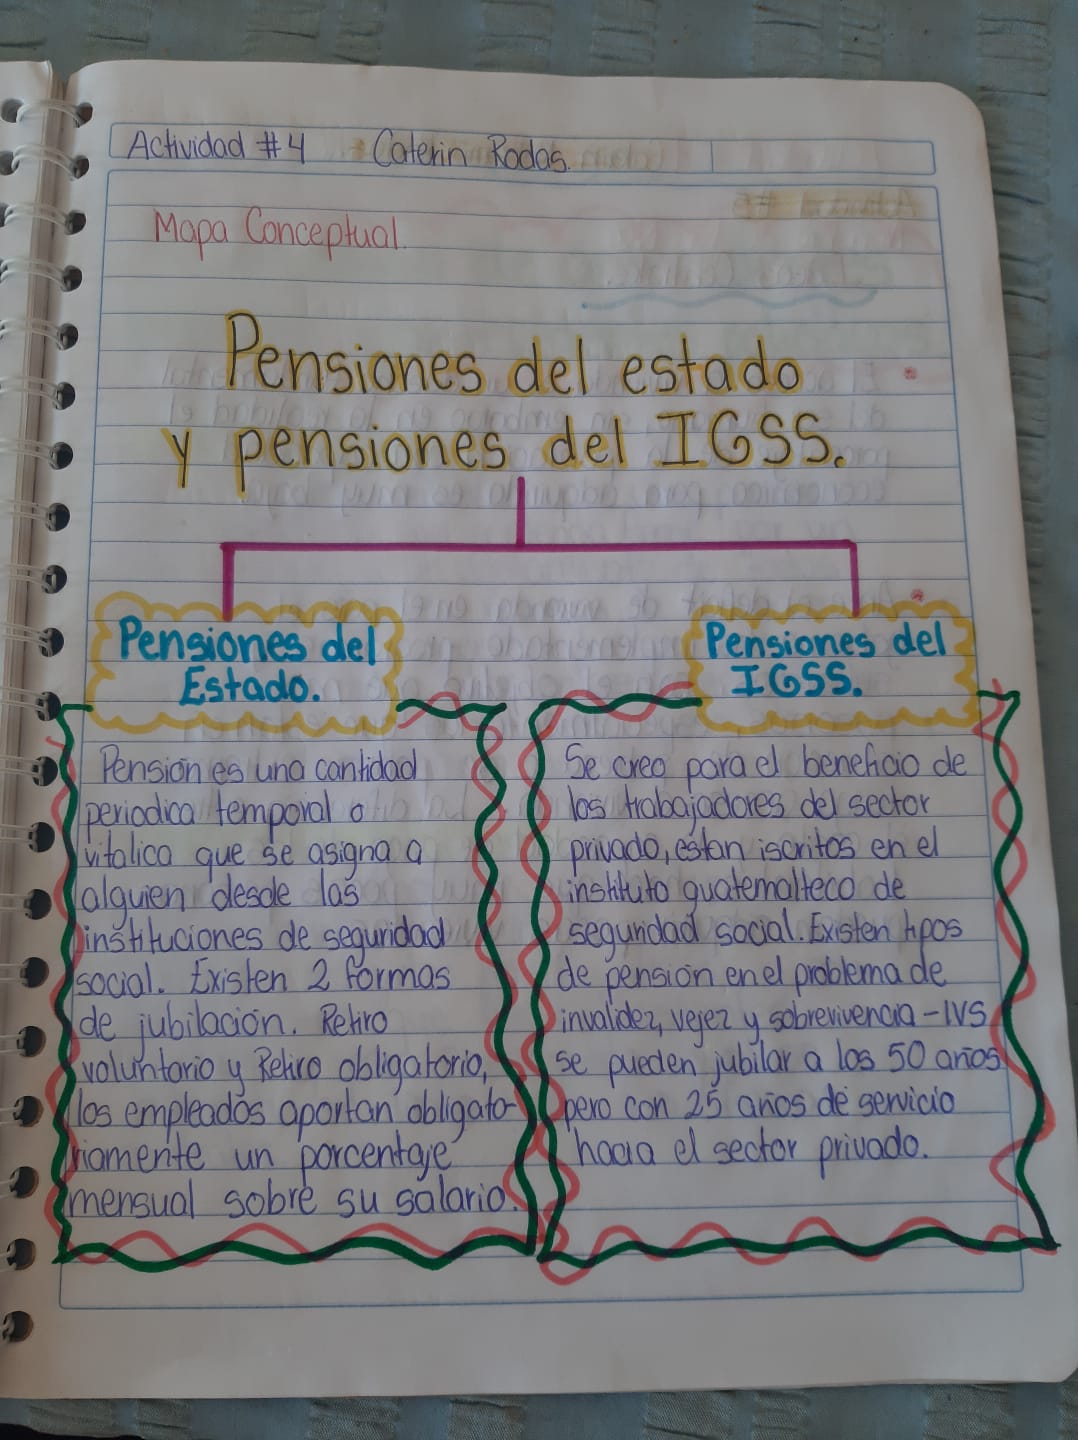 Actividad #4 Caterin Rodas.
Mapa Conceptual.
Pensiones del estado
y pensiones del IGSS.
Pensiones del
Estado.
Pension es una cantidad
periodica temporal o
vitalica que se asigna a
alguien desde las
instituciones de seguridad
social. Existen 2 formas
de jubilación. Retiro
voluntario y Retiro obligatorio,
los empleados aportan obligato-
riamente un porcentaje
mensual sobre su salario.
Pensiones del
IGSS.
Se creo para el beneficio de
los trabajadores del sector
privado, estan iscritos en el
instituto guatemalteco de
seguridad social. Existen tipos
de pensión en el problema de
invalidez, vejez y sobrevivencia - IVS
se pueden jubilar a los 50 años
pero con 25 años de servicio
hacia el sector privado.